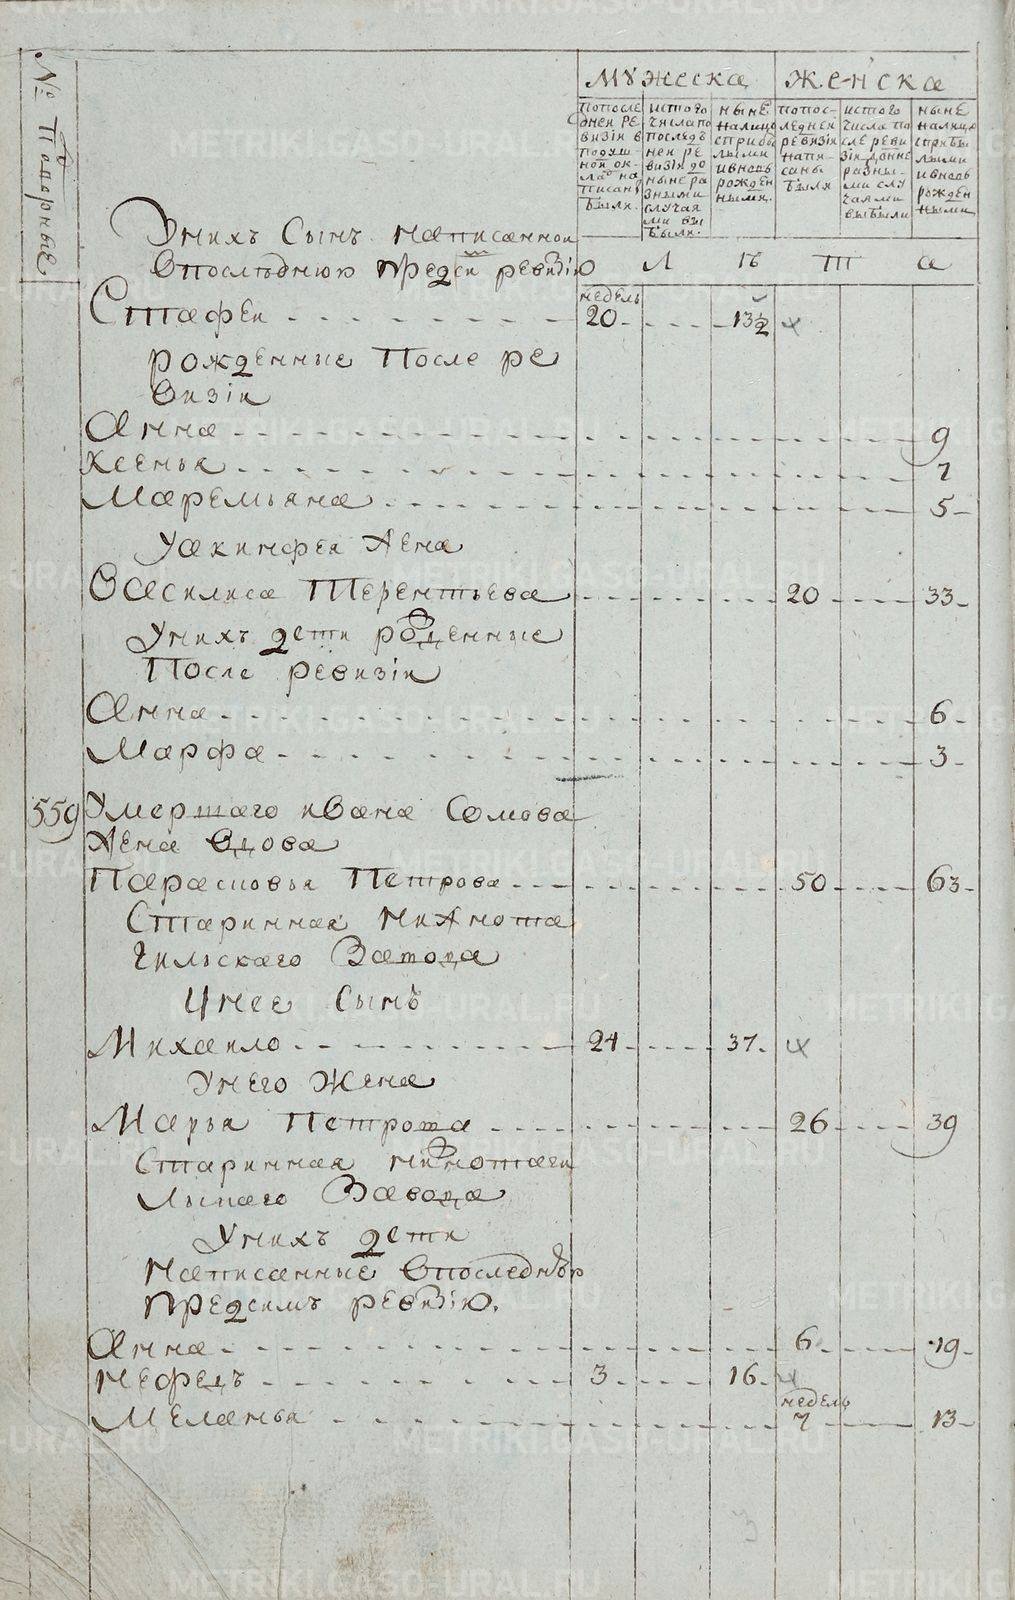 № Подворные
Мужеска Женска
попоследней ревизіи в подушной окладъ написаны были.
ис того числа по последъней ревизіи до ныне разными случаями выбыли.
ныне налицо сприбылыми ивновь рожденными.
попоследней ревизіи написаны были
ис того числа после ревизіи доныне разными случаями выбыли
ныне налицо сприбылыми ивновь рожденными
Унихъ Сынъ написанной
Впослѣднюю предси ревизію Л ѣ т а
недель
Стафеи 20 13½
рожденные После ре
визіи
Анна 9
Ксенья 7
Маремьяна 5
Уакинфея Жена
Василиса Терентьева 20 33
Унихъ дети рожденные
После ревизіи
Анна 6
Марфа 3
559 Умершаго ивана Сомова
Жена вдова
Парасковья Петрова 50 63
Старинная нижнота
гильскаго Завода
Унее Сынъ
Михаило 24 37
Унего Жена
Марья Петрова 26 39
Старинная нижнотаги
льскаго Завода
Унихъ дети
Написанные Впоследнюю
предсимъ ревизію.
Анна 6 19
Нефедъ 3 16
недель
Меланья 7 13